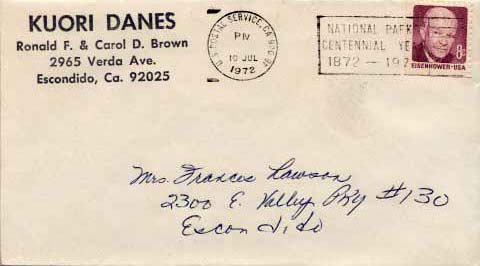 KUORI DANES
Ronald F. & Carol D. Brown
2965 Verda Ave.
Escondido, Ca. 92025
U.S. POSTAL SERVICE, CA
PM
10 JUL
1972
NATIONAL PARK
CENTENNIAL YE
1872 — 197
8c
EISENHOWER·USA
Mrs. Frances Lawson
2300 E. Valley Pky #130
Escondido